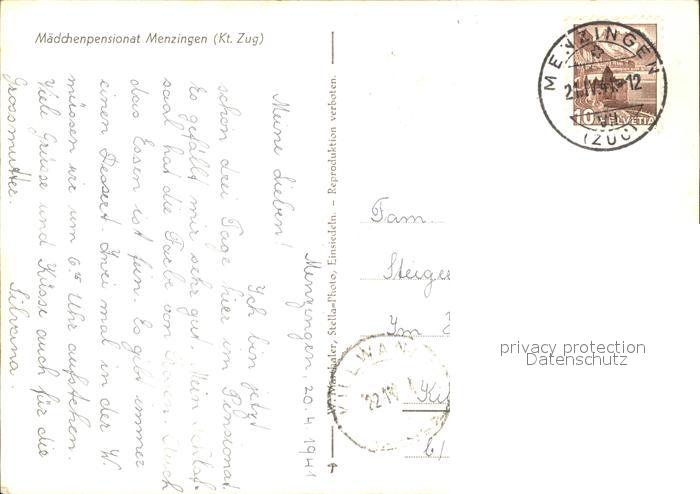 Mädchenpensionat Menzingen (Kt. Zug)
Menzingen, 20. 4. 1941
Meine Lieben!
Ich bin jetzt
schon drei Tage hier im Pensionat.
Es gefällt mir sehr gut. Mein Schlaf-
saal hat die Farbe von Rosen. Auch
das Essen ist fein. Es gibt immer
einen Dessert. Zwei mal in der W.
müssen wir um 6 Uhr aufstehen.
Viele Grüsse und Küsse auch für die
Grossmutter.
Silvana.
Stella-Photo, Einsiedeln. – Reproduktion verboten.
MENZINGEN
21.IV.41-12
(ZUG)
10 HELVETIA
Fam.
Steiger
Im
KILLWANGEN
22.IV
Kil
b/
privacy protection
Datenschutz